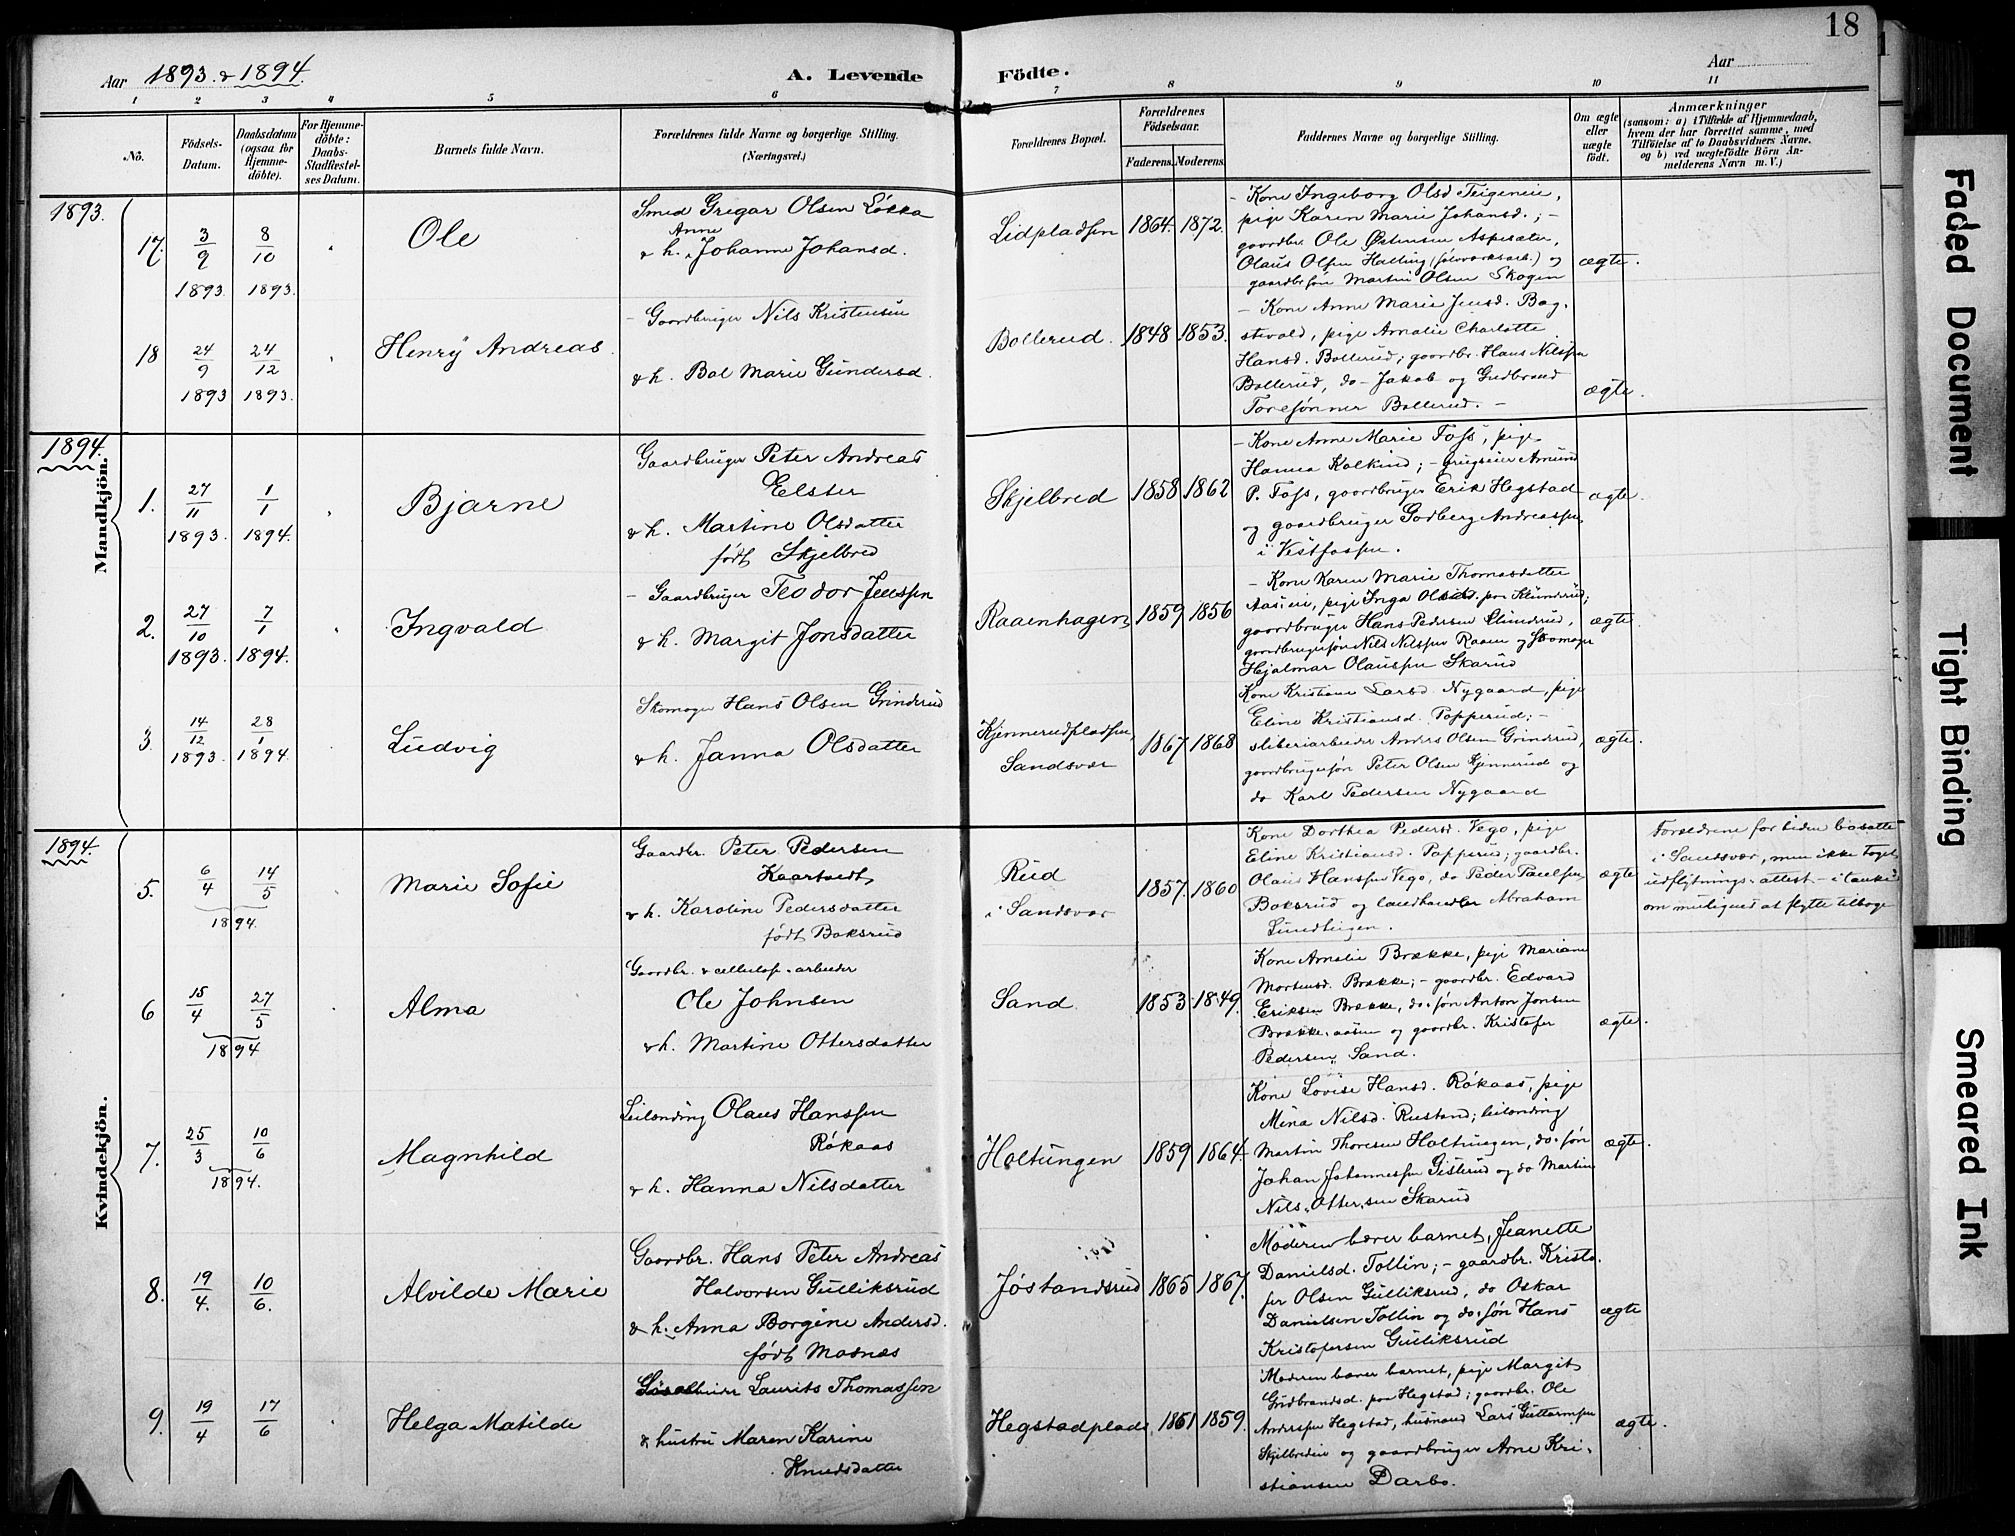 18
Aar 1893 & 1894.
A. Levende Födte.
Aar
1 2 3 4 5 6 7 8 9 10 11
No.
Födsels-
Datum.
Daabsdatum
(ogsaa for
Hjemme-
döbte).
For Hjemme-
döbte:
Daabs-
Stadfæstel-
ses Datum.
Barnets fulde Navn.
Forældrenes fulde Navne og borgerlige Stilling.
(Næringsvei.)
Forældrenes Bopæl.
Forældrenes
Födselsaar.
Faderens. Moderens.
Faddernes Navne og borgerlige Stilling.
Om ægte
eller
uægte
födt.
Anmærkninger
(saasom: a) i Tilfælde af Hjemmedaab,
hvem der har forrettet samme, med
Tilföielse af to Daabsvidners Navne,
og b) ved uægtefödte Börn An-
melderens Navn m. V.)
1893.
17.
3/9
1893.
8/10
1893.
Ole
Smed Gregar Olsen Løkka
Anne
& h. Johanne Johansd.
Lidpladsen
1864. 1872.
- Kone Ingeborg Olsd Teigeneie,
pige Karen Marie Johansd.; -
gaardbr. Ole Østensen Aspesæter,
Olaus Olsen Halling (sølvværksarb.) og
gaardbr. søn Martin Olsen Skogen
ægte.
18
24/9
1893
24/12
1893.
Henry Andreas
- Gaardbruger Nils Kristensen
& h. Bol Marie Gundersd.
Bollerud.
1848 1853.
- Kone Anne Marie Jensd. Bag-
stevald, pige Amalie Charlotte
Hansd. Bollerud; gaardbr. Hans Nilssen
Bollerud, do - Jakob og Gudbrand
Toresønner Bollerud. -
ægte.
1894.
Mandkjön.
1.
27/11
1893.
1/1
1894.
Bjarne
Gaardbruger Peter Andreas
Elster
& h. Martine Olsdatter
født Skjelbred
Skjelbred
1858 1862
- Kone Anne Marie Foss, pige
Hanna Kolkind; - brugseier Amund
P. Foss, gaardbruger Erik Hegstad
og gaardbruger Godberg Andreassen
i Vestfossen.
ægte.
2.
27/10
1893.
7/1
1894.
Ingvald
- Gaardbruger Teodor Jenssen
& h. Margit Jonsdatter
Raaenhagen
1859 1856
- Kone Karen Marie Thomasdatter
Aaseie, pige Inga Olsd. paa Klunderud;
gaardbruger Hans Pedersen Slunderud,
gaardbrugersøn Nils Nilssen Raaen og Skomager
Hjalmar Olaussen Skarud
ægte.
3.
14/12
1893.
28/1
1894.
Ludvig
Skomager Hans Olsen Grinderud
& h. Janna Olsdatter
Kjennerudpladsen,
Sandsvær
1867. 1868
Kone Kristiane Larsd. Nygaard, pige
Eline Kristiansd. Popperud; -
sliberiarbeider Anders Olsen Grinderud,
gaardbrugersøn Peter Olsen Kjennerud og
do Karl Pedersen Nygaard
ægte.
1894.
Kvindekjön.
5.
6/4
14/5
1894.
Marie Sofie
Gaardbr. Peter Pedersen
Kaartvedt
& h. Karoline Pedersdatter
født Boksrud
Rud
i Sandsvær
1857. 1860
Kone Dorthea Pedersd. Vego, pige
Eline Kristiansd. Popperud; gaardbr.
Olaus Hanssen Vego, do Peder Paulsen
Boksrud og landhandler Abraham
Lundteigen.
ægte
Forældrene for tiden bosatte
i Sandsvær, men ikke taget
udflytnings-attest - i tanke
om muligens at flytte tilbage
6
15/4
27/5
1894
Alma
Gaardbr. & cellulose-arbeider
Ole Johnsen
& h. Martine Ottersdatter
Sand
1853 1849.
Kone Amalie Brække, pige Mariane
Mortensd. Brække; - gaardbr. Edvard
Eriksen Brække, do. søn Anton Jonsen
Brække-aasen og gaardbr. Kristofer
Pedersen Sand.
ægte.
7.
25/3
10/6
1894.
Magnhild
Leilending Olaus Hanssen
Røkaas
& h. Hanna Nilsdatter
Holtungen
1859 1864
Kone Lovise Hansd. Røkaas, pige
Mina Nilsd. Rustand; leilending
Martin Thoresen Holtungen, do. søn
Johan Johannessen Gisterud og do Martin
Nils Ottersen Skarud
ægte.
8.
19/4.
10/6.
Alvilde Marie
Gaardbr. Hans Peter Andreas
Halvorsen Gulliksrud
& h. Anna Borgine Andersd.
født Mosnæs
Jøstandsrud
1865 1867.
Moderen bærer barnet, Jeanette
Danielsd. Tollin; - gaardbr. Kristo-
fer Olsen Gulliksrud, do Oskar
Danielsen Tollin og do. søn Hans
Kristofersen Gulliksrud
ægte
9.
19/4
17/6
Helga Matilde
Laurits Thomassen
& hustru Maren Karine
Knudsdatter
Hegstadplads.
1861 1859.
Moderen bærer barnet, pige Margit
Gudbrandsd. paa Hegstad; gaardbr. Ole
Anderssen Hegstad, husmand Lars Guttormsen
Skjelbredeie og gaardbruger Arne Kri-
stiansen Darbo.
ægte.
Faded Document
Tight Binding
Smeared Ink